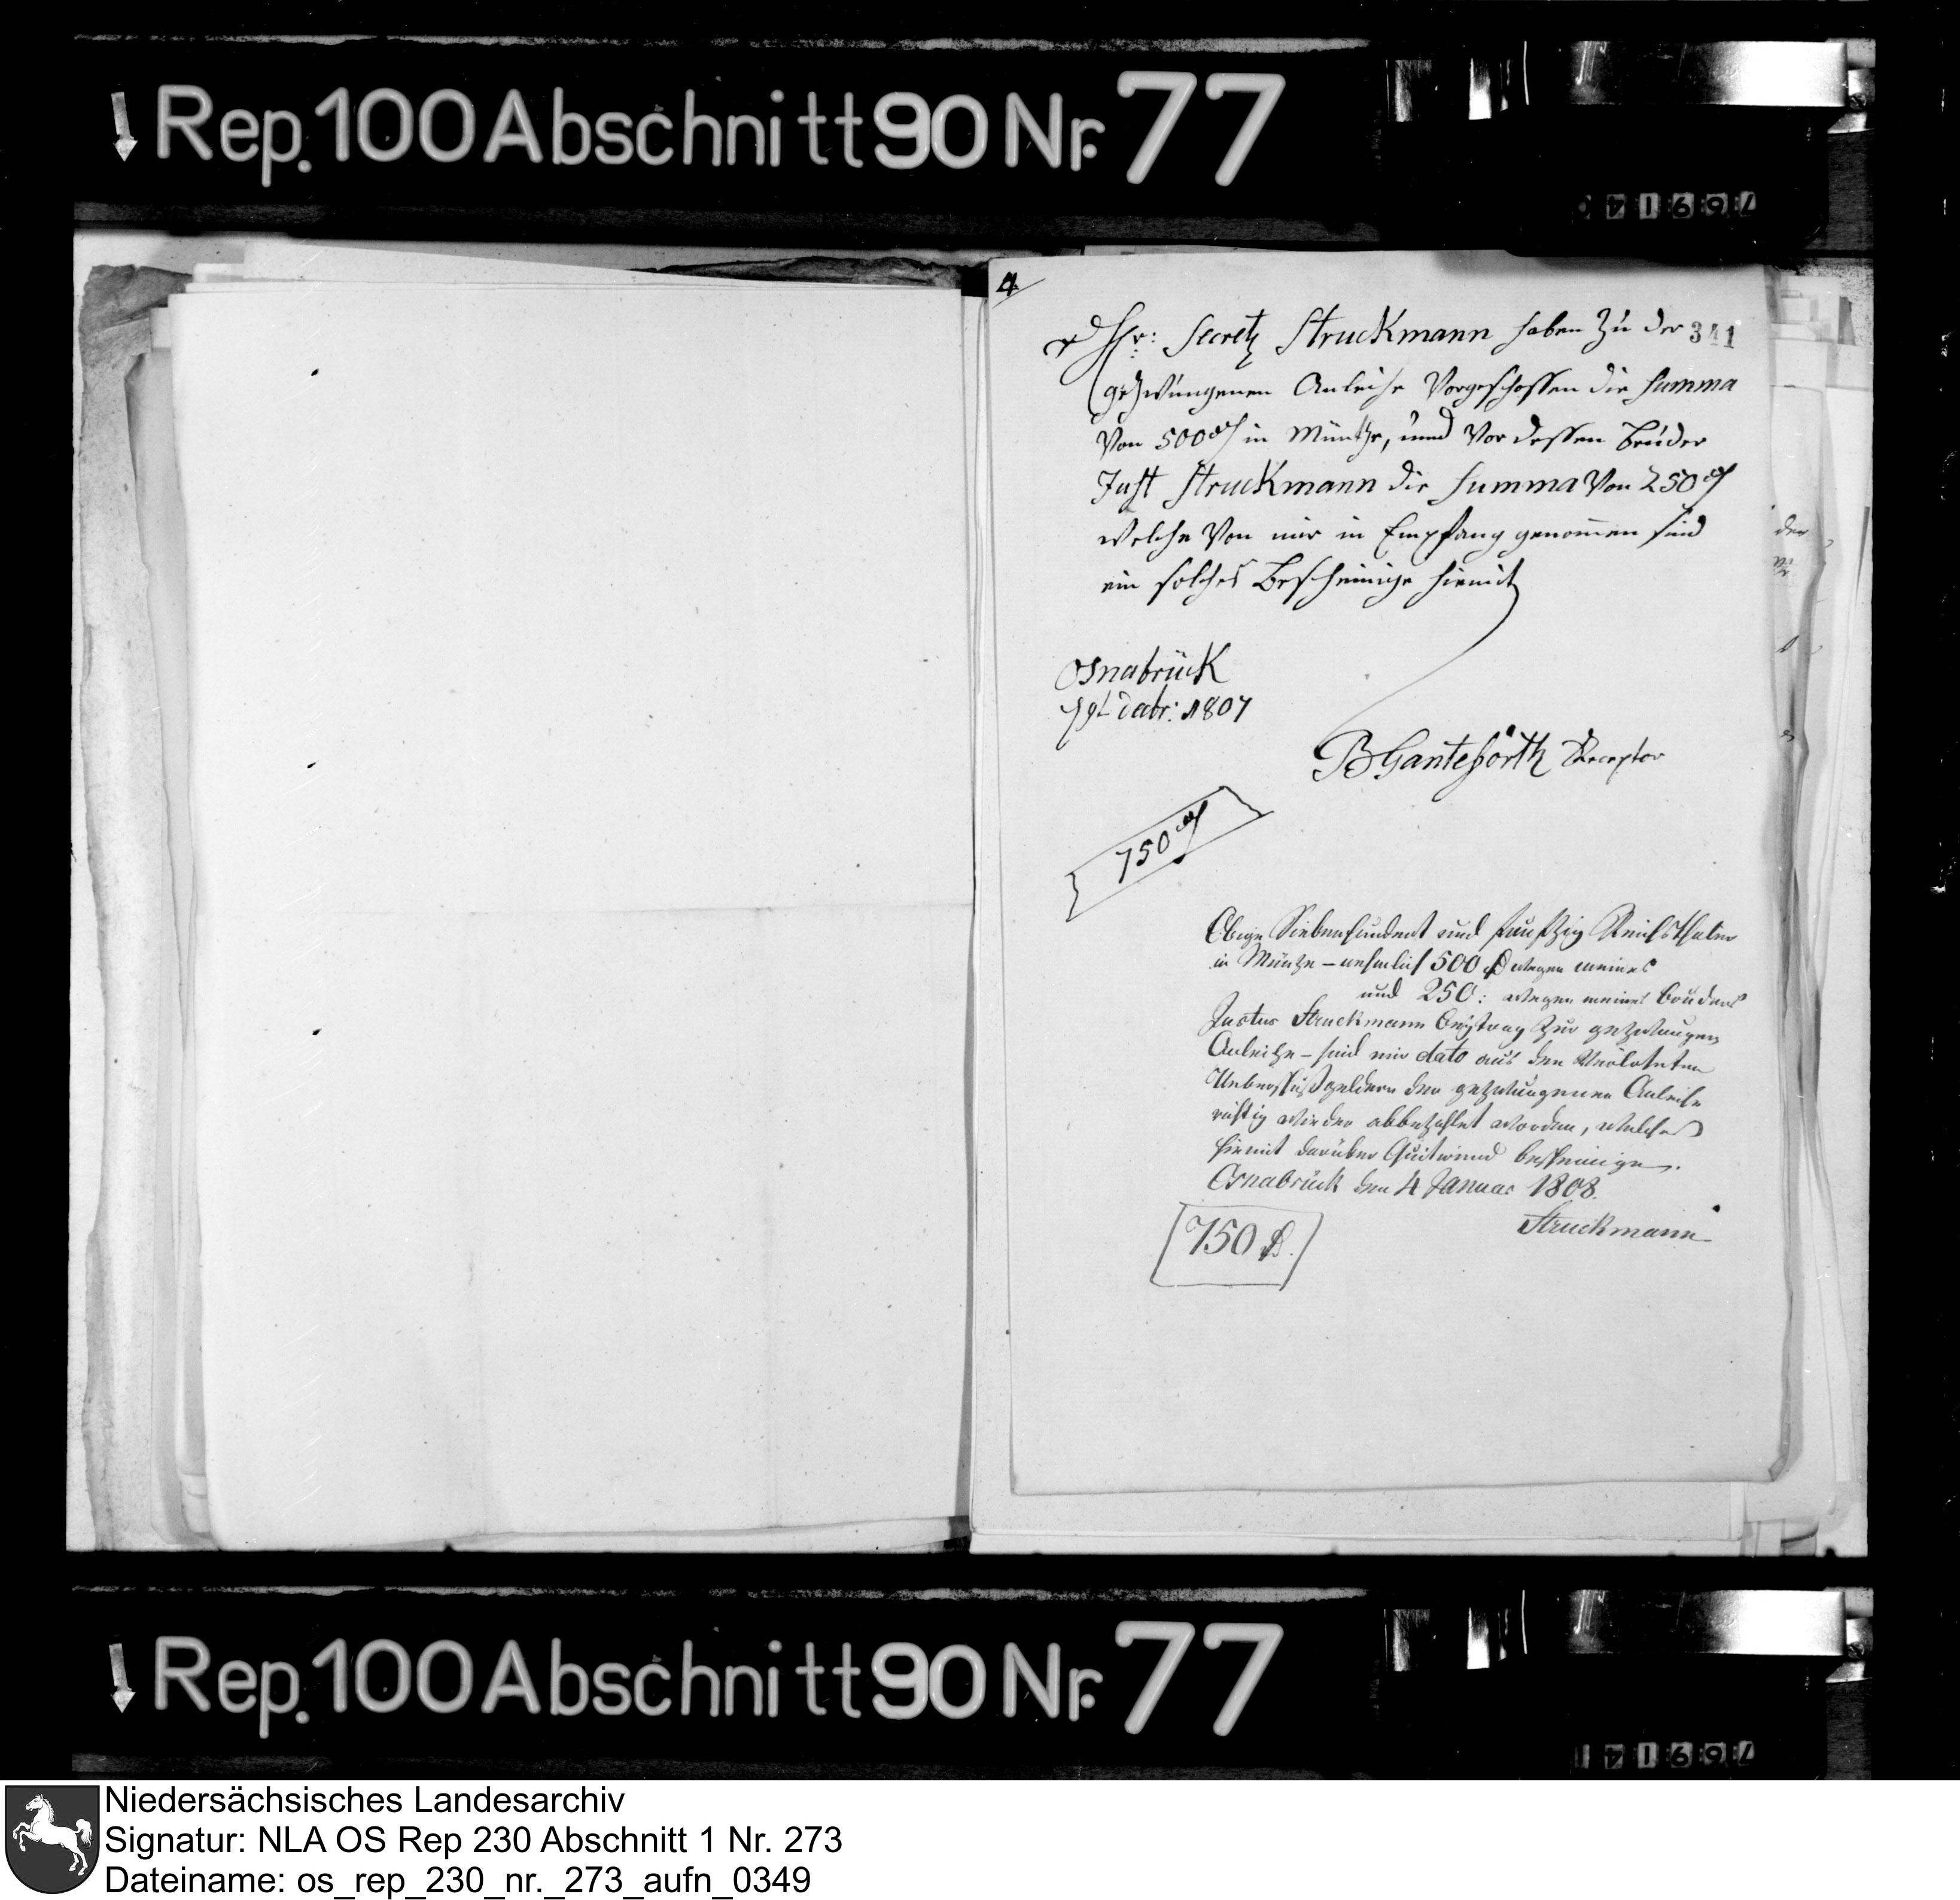 Rep. 100 Abschnitt 90 Nr. 77
4
341
Hr: Secret Struckmann haben zu der
gezwungenen Anleihe Vorgeschossen die Summa
Von 500 rt in Müntze, und Vor dessen Bruder
Just Struckmann die Summa Von 250 rt
welche Von mir in Empfang genomen sind
ein solches Bescheinige hiemit
Osnabrück
Dcbr: 1807
B Gantesörth Receptor
750 rt
Obige Siebenhundert und funfzig Reichsthaler
in Müntze – nehmlich 500 rt wegen meines
und 250: wegen meines Bruders
Justus Struckmann Beytrag zur gezwungen
Anleihe – sind mir dato aus den
Ueberschußgeldern der gezwungenen Anleihe
richtig wieder abbezahlet worden, welches
hiemit darüber Quitirend bescheinige.
Osnabrück den 4 Januar 1808.
Struckmann
750 rt.
Rep. 100 Abschnitt 90 Nr. 77
Niedersächsisches Landesarchiv
Signatur: NLA OS Rep 230 Abschnitt 1 Nr. 273
Dateiname: os_rep_230_nr._273_aufn_0349